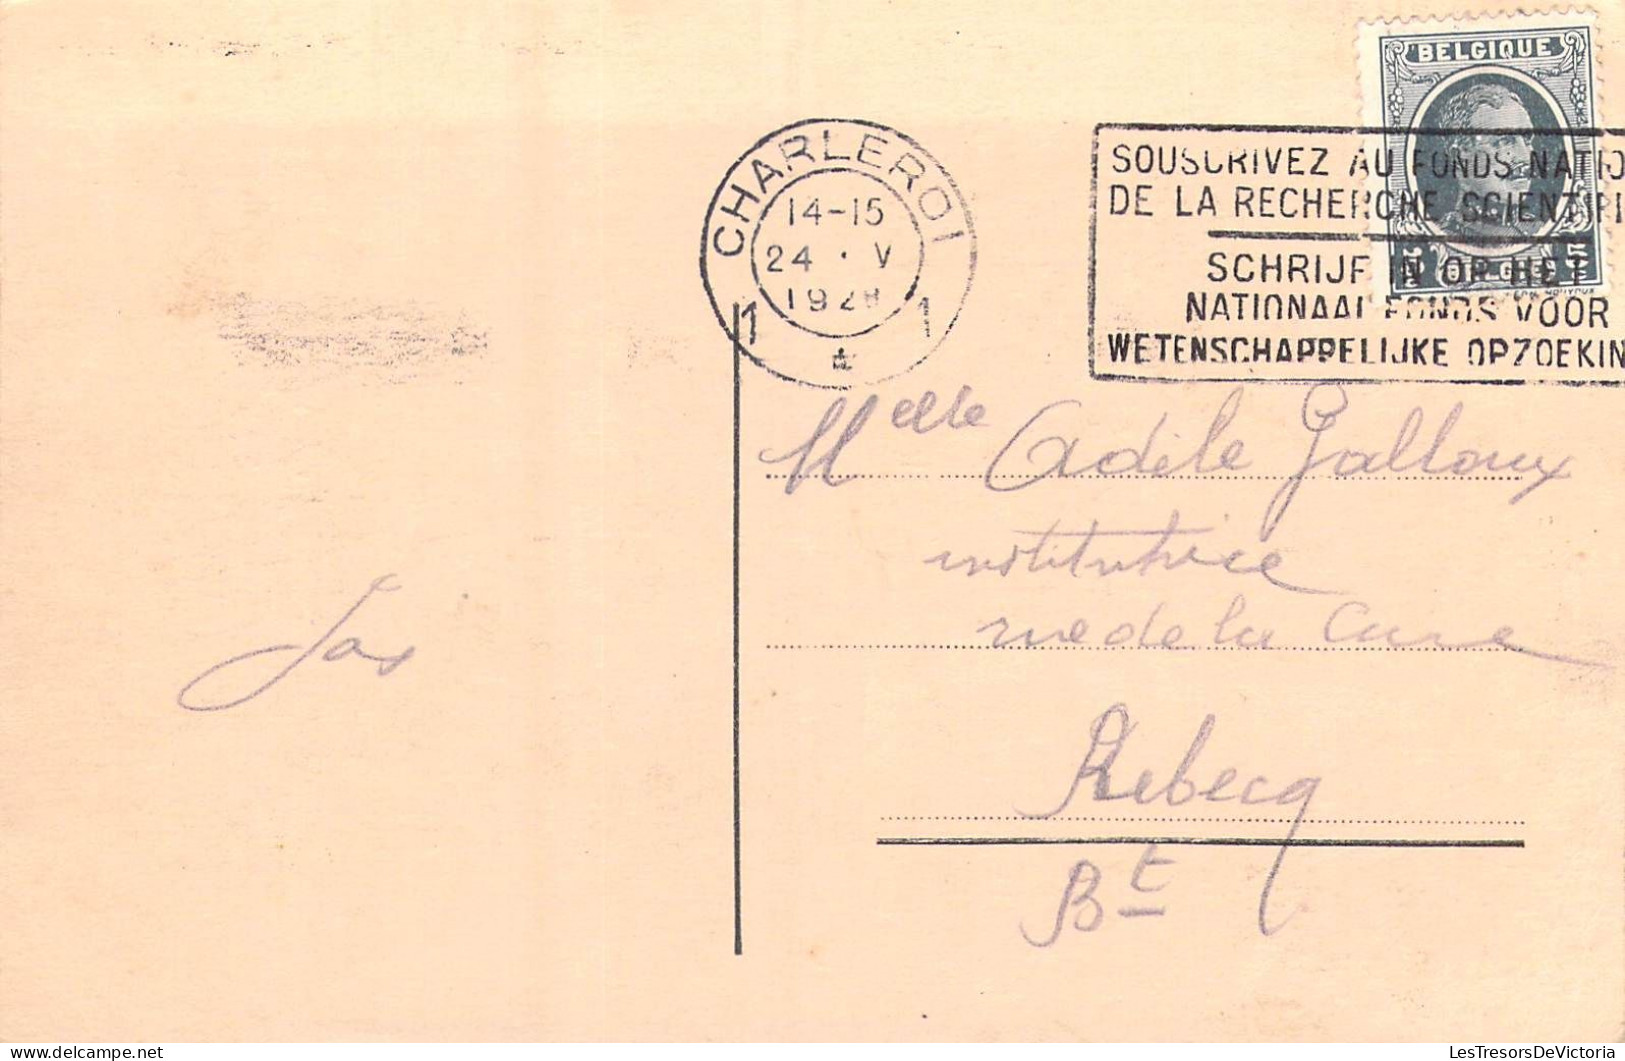 BELGIQUE
CHARLEROI
14-15
24 · V
1928
1 1
SOUSCRIVEZ AU FONDS NATIO
DE LA RECHERCHE SCIENTIFI
SCHRIJF IN OP HET
NATIONAAL FONDS VOOR
WETENSCHAPPELIJKE OPZOEKIN
Melle Adèle Galloux
institutrice
rue de la Cure
Rebecq
Bt
LesTresorsDeVictoria